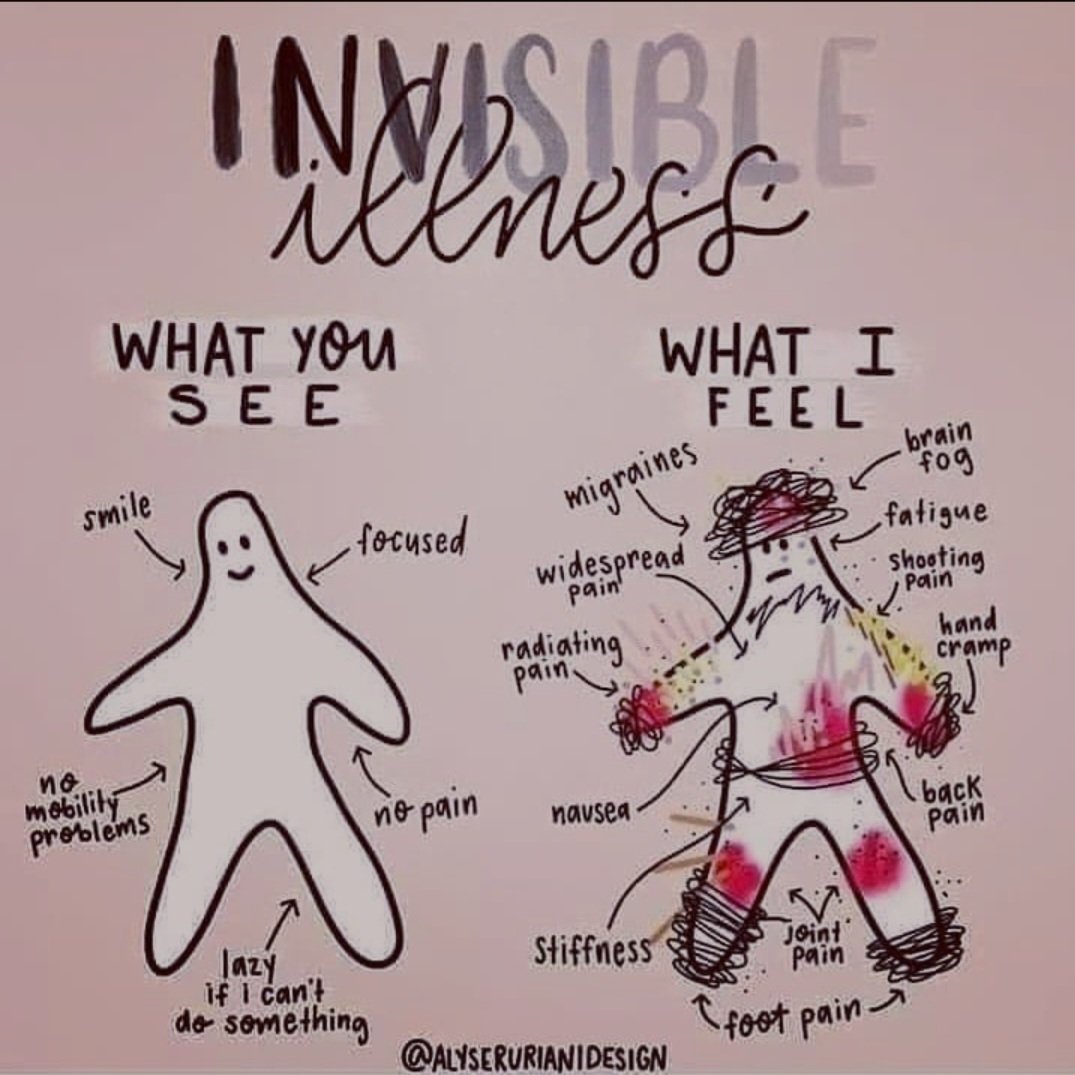 INVISIBLE
illness
WHAT YOU
SEE
smile
focused
no
mobility
problems
no pain
lazy
if i can't
do something
WHAT I
FEEL
migraines
brain
fog
fatigue
widespread
pain
shooting
pain
radiating
pain
hand
cramp
nausea
back
pain
stiffness
joint
pain
foot pain
@ALYSERURIANIDESIGN